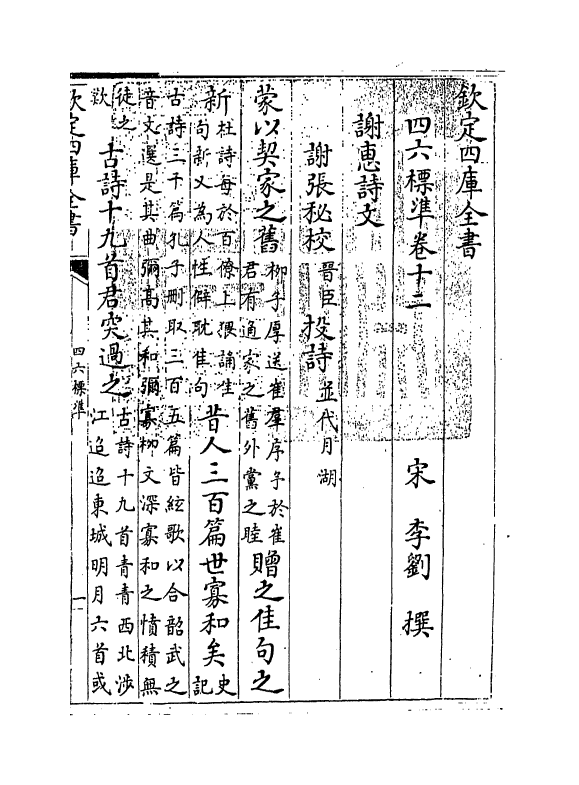 欽定四庫全書
四六標準卷十二 宋 李劉 撰
謝惠詩文
謝張秘校 晉臣 投詩 並代月湖
蒙以契家之舊 柳子厚送崔羣序予於崔君有通家之舊外黨之睦 贈之佳句之
新 杜詩每於百僚上猥誦佳句新又為人性僻耽佳句 昔人三百篇世寡和矣 史記
古詩三千篇孔子刪取三百五篇皆絃歌以合韶武之
音文選是其曲彌髙其和彌寡柳文深寡和之憤積無
徒之歎 古詩十九首君突過之 古詩十九首青青西北涉江迢迢東城明月六首或
欽定四庫全書
四六標準
一